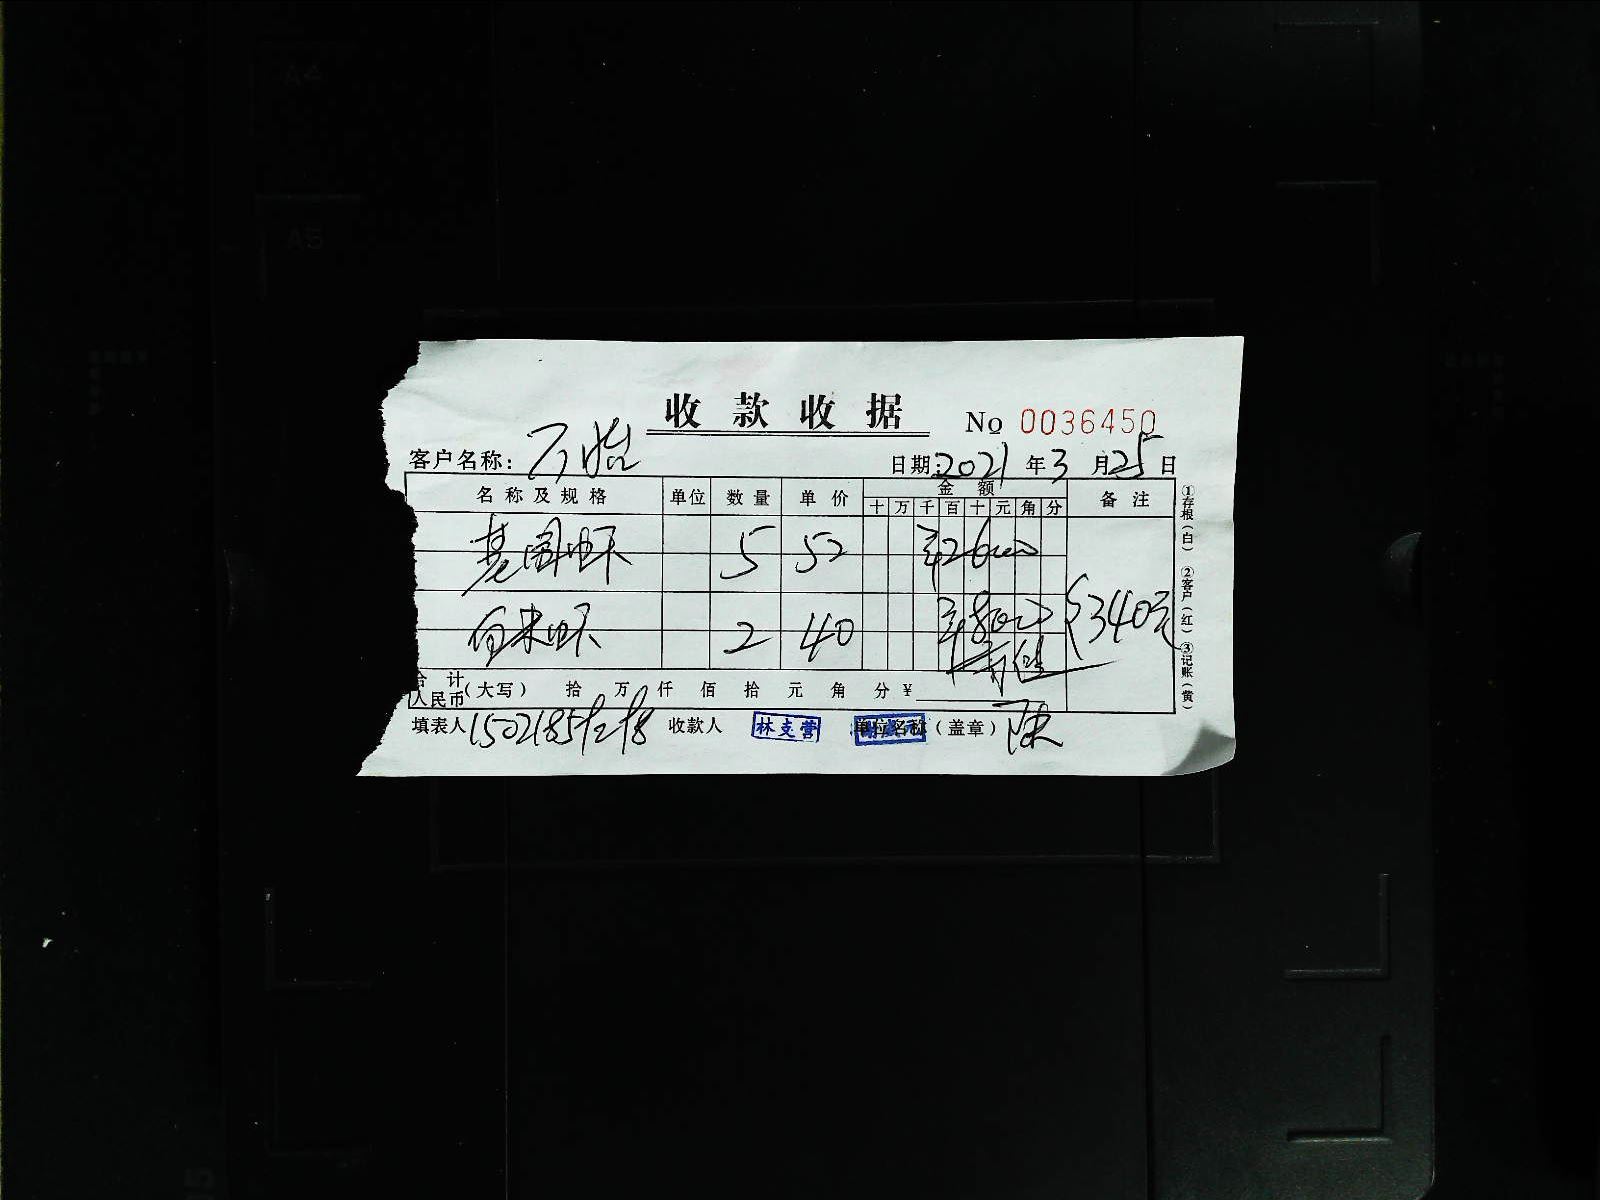 A4
A5
收款收据
№ 0036450
客户名称：万怡
日期：2021年3月25日
名称及规格 单位 数量 单价 金额 备注
十 万 千 百 十 元 角 分
基围虾 5 52 ¥26000
白米虾 2 40 ¥8000
340元
合计
人民币（大写） 拾 万 仟 佰 拾 元 角 分 ¥
填表人 收款人 林支营 单位名称（盖章）陈
①存根（白） ②客户（红） ③记账（黄）